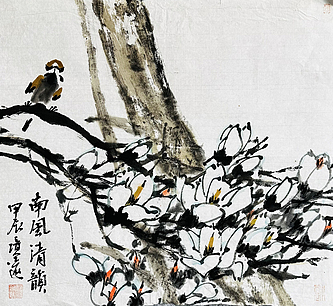 南风清韻
甲辰